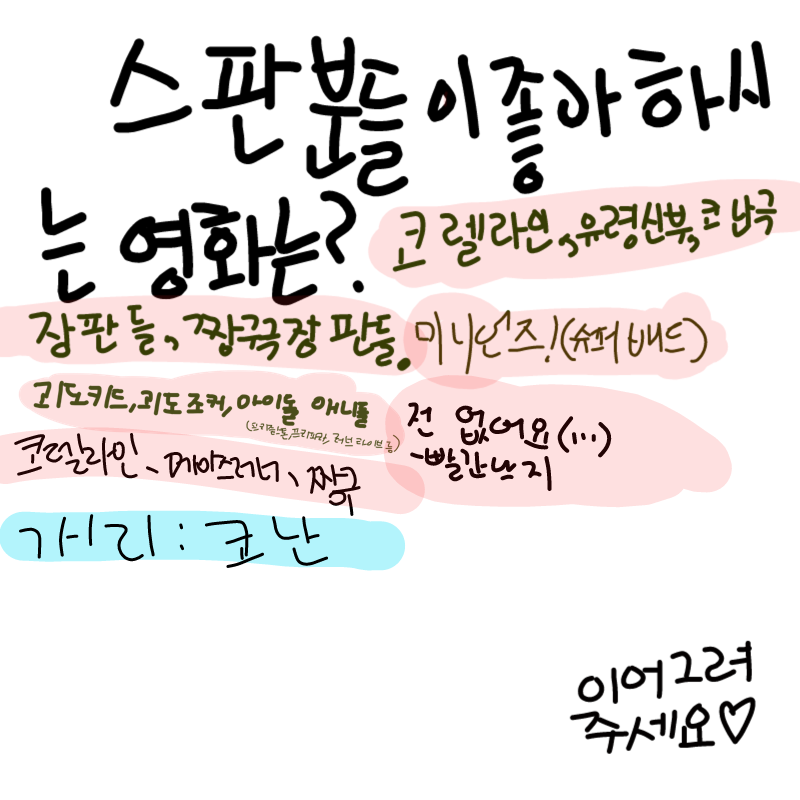 스판분들이좋아하시
는 영화는?
코렐라인,유령신부,코난극
장판들, 짱구극장판들.
미니언즈!(슈퍼배드)
괴도키드,괴도조커,아이돌 애니들
(프리파라, 러브라이브 등)
전 없어요(...)
-빨간낸지
코렐라인, 메이즈러너, 짱구
개리 : 코난
이어그려
주세요♡